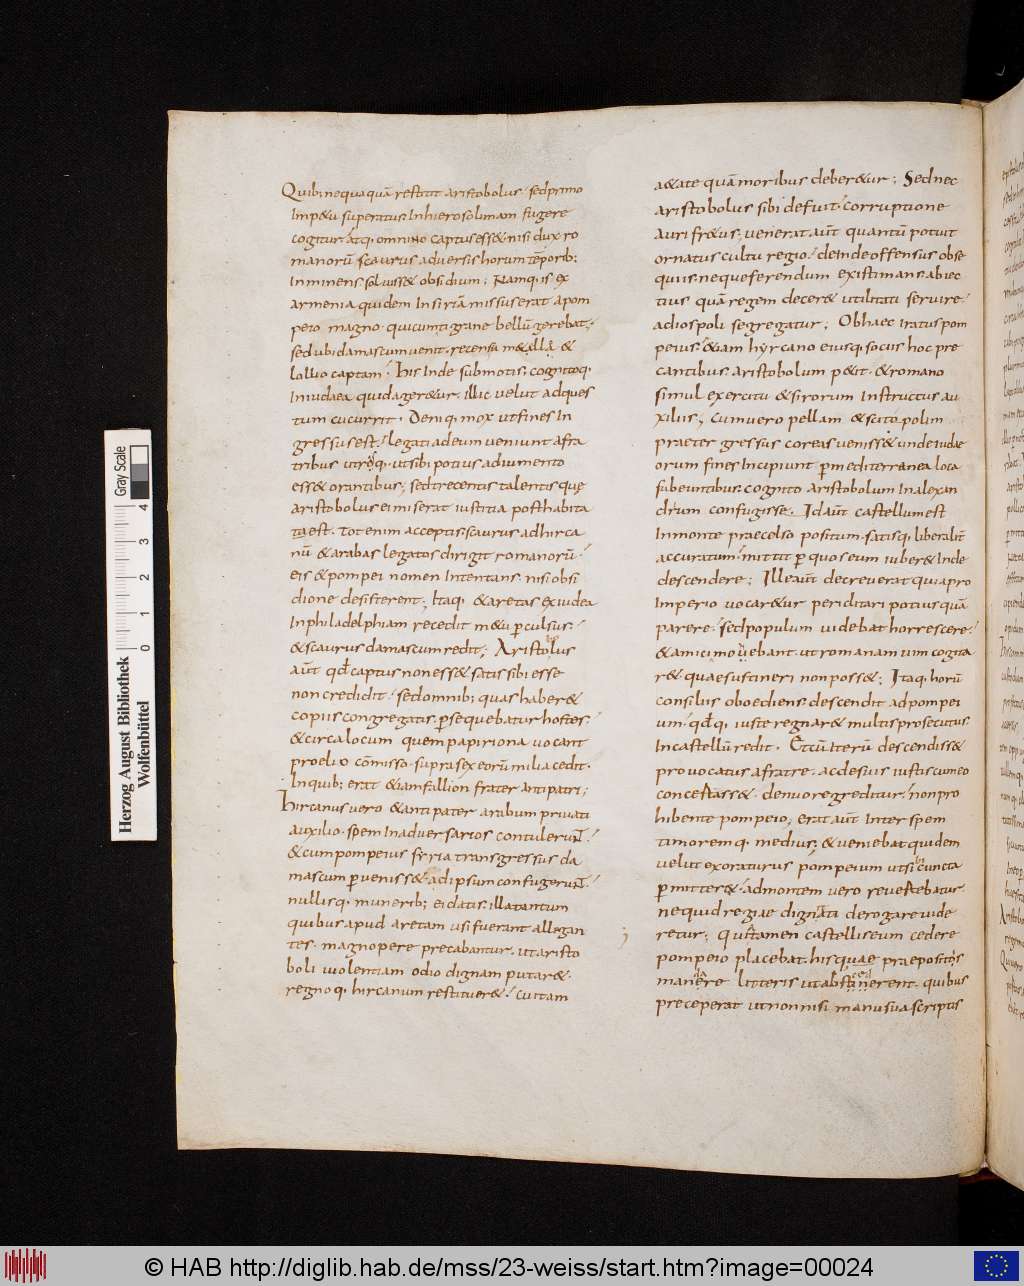 Quibinequaquā restitit aristobolus. sed primo
Impetu superatus. Inhierosolimam fugere
cogitur. atq. omnino captus ess& nisi dux ro
manorū scaurus adversis horum tēporib;
Inminens. soluiss& obsidium; Namq. is ex
armenia quidem Insiriā missus erat apom
peio magno. qui cum tigrane bellū gerebat.
sed ubi damascum venit. recensā m&allā &
lollio captam. his inde submotis. cognitoq.
Iniudaea quid ager&ur. illic velut ad ques
tum cucurrit. Deniq. mox ut fines In
gressus est. legati ad eum veniunt a fra
tribus utrisq. ut sibi potius adiumento
ess& orantibus; sed trecentis talentis que
aristobolus ei miserat iustitia posthabita
ta est. Tot enim acceptis scaurus ad hirca
nū & arabas legatos dirigit romanorū.
eis & pompei nomen Intentans. nisi obsi
dione desisterent; Itaq. & aretas ex iudea
In philadelphiam recedit m&u perculsus.
& scaurus damascum redit; Aristobolus
aūt qđ captus non ess& satis sibi esse
non credidit. sed omnib; quas haber&
copiis congregatis. persequebatur hostes.
& circa locum quem papiriona vocant
proelio cōmisso. supra sex eorū milia cedit.
Inquib; erat & iam fallion frater antipatri;
hircanus vero & antipater arabum privati
auxilio. spem In adversarios contulerunt.
& cum pompeius syria transgressus da
mascum perveniss& ad ipsum confugerunt.
nullisq. munerib; ei datis. illa tantum
quibus apud aretam usi fuerant allegan
tes. magnopere precabantur. ut aristo
boli violentiam odio dignam putar&.
regnoq. hircanum restituer&. cui tam
a&ate quā moribus deber&ur; Sed nec
aristobolus sibi defuit. corruptione
auri fr&us. venerat aūt quantū potuit
ornatus cultu regio. deinde offensus obse
quiis. neque ferendum existimans abiec
tius quā regem decer& utilitati servire.
adiospoli segregatur; Ob haec iratus pom
peius. &iam hyrcano eiusq. socus hoc pre
cantibus aristobolum p&it. & romano
simul exercitu & sirorum Instructus au
xiliis; cum vero pellam & scitopolim
praeter gressus coreas veniss& unde iudae
orum fines Incipiunt per mediterranea loca
subeuntibus. cognito aristobolum In alexan
drium confugisse. Id aūt castellum est
In monte praecelso positum. satisq. liberalit̄
accuratum. mittit per quos eum iuber& Inde
descendere; Ille aūt decreverat quia pro
Imperio vocar&ur periditari potius quā
parere. sed populum videbat horrescere.
& amici movebant. ut romanam vim cogita
r& quae sustineri non poss&; Itaq. horū
consiliis oboediens descendit ad pompei
um. qđq. iuste regnar& multis prosecutus
In castellū redit. Et cū Iterū descendiss&
provocatus a fratre. ac de suis iustis cum eo
concertass&. denuo regreditur. non pro
hibente pompeio; erat aūt Inter spem
timoremq. medius; & veniebat quidem
velut exoraturus pompeium ut sibi cuncta
permitter&. ad montem vero revertebatur.
nequid regiae dignitati derogare vide
retur; Qui tamen castellis eum cedere
pompeio placebat. hisquae praepositis
mandare litteris ut abscederent. quibus
preceperat ut non nisi manu sua scriptis
Herzog August Bibliothek
Wolfenbüttel
0 1 2 3 4
Gray Scale
© HAB http://diglib.hab.de/mss/23-weiss/start.htm?image=00024